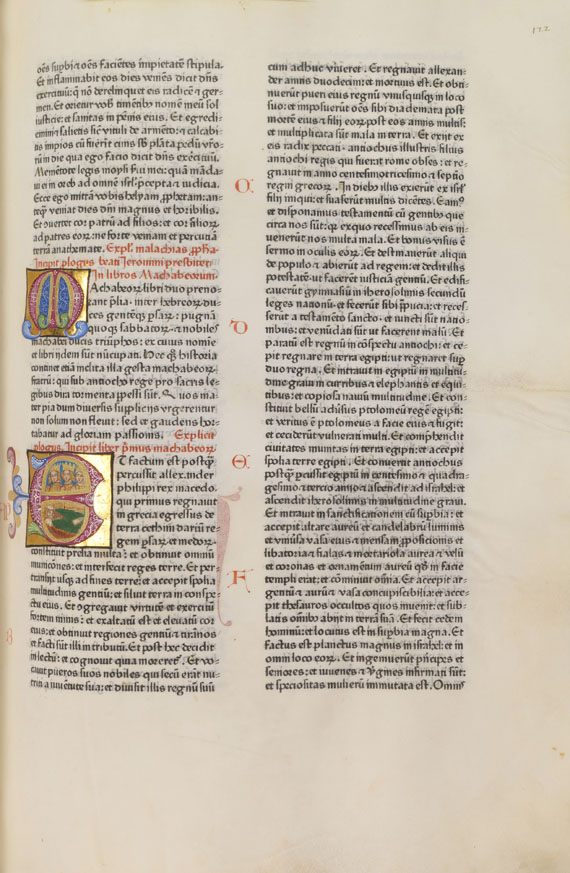 122
oẽs supbi ⁊ oẽs faciẽtes impietatẽ stipula.
Et inflammabit eos dies veniẽs dicit dñs
exercituũ: q̃ nõ derelinquet eis radicẽ ⁊ ger-
men. Et orietur vob timẽtib nomẽ meũ sol
iusticie: et sanitas in pẽnis eius. Et egredi-
emini ⁊ salietis sic vituli de armẽto: ⁊ calcabi-
tis impios cũ fuerĩt cinis sb plãta pedũ vr̃o-
rũ in die qua ego facio dicit dñs exercituũ.
Mementote legis moysi serui mei: quã mãda-
ui ei in oreb ad omnẽ isrl' p̃cepta ⁊ iudicia.
Ecce ego mittã vobis helyam ꝓphetam: an-
teq̃ veniat dies dñi magnus et horibilis.
Et cõuertet cor patrũ ad filios: et cor filioꝝ
ad patres eoꝝ: ne forte veniam et percutiã
terrã anathemate. Expl' malachias ꝓpha.
Incipit plogus beati Jeronimi presbiteri
In libros Machabeorum.
Machabeorũ libri duo preno-
tant plia. inter hebreorũ du-
ces gentẽq̃ psaꝝ: pugnã
quoq̃ sabbatoꝝ. ⁊ nobiles
machabei ducis triũphos: ex cuius nomie
et libri ijdem sũt nũcupati. Hec q̃ historia
continet etiã inclita illa gesta machabeoꝝ
fratrũ: qui sub antiocho rege pro sacris le-
gibus dira tormenta ꝓpessi sũt. Quos ma-
ter pia dum diuersis suppliciis vrgerentur
non solum non fleuit: sed et gaudens hor-
tabatur ad gloriam passionis. Explicit
plogus. Incipit liber p̃mus machabeoꝝ
Et factum est postq̃
percussit allexander
philippi rex macedo.
qui primus regnauit
in grecia egressus de
terra cethim dariũ re-
gem psaꝝ et medoꝝ.
constituit prelia multa: et obtinuit omniũ
municões: et interfecit reges terre. Et per-
transijt usq̃ ad fines terre: et accepit spolia
multitudinis gentiũ: et siluit terra in conspe-
ctu eius. Et cõgregauit virtutẽ et exercitũ
fortem nimis: et exaltatũ est et eleuatũ cor
eius: et obtinuit regiones gentiũ et tirãnos
et facti sũt illi in tributũ. Et post hec decidit
in lectũ: et cognouit quia moreret'. Et vo-
cauit pueros suos nobiles qui secũ erãt nu-
triti a iuuentute sua: et diuisit illis regnũ suũ
cum adhuc viueret. Et regnauit allexan-
der annis duodecim: et mortuus est. Et obti-
nuerũt pueri eius regnũ vnusquisq̃ in loco
suo: et imposuerũt oẽs sibi diademata post
mortẽ eius ⁊ filij eoꝝ post eos annis multis:
et multiplicata sũt mala in terra. Et exijt ex
eis radix peccati. antiochus illustris filius
antiochi regis qui fuerat rome obses: et re-
gnauit in anno centesimotricesimo ⁊ septio
regni grecoꝝ. In dieb illis exierũt ex isrl'
filij iniqui: et suaserũt multis dicẽtes. Eam9
et disponamus testamẽtũ cũ gentib que
circa nos sũt: q̃ exquo recessimus ab eis in-
uenerũt nos multa mala. Et bonus visus ẽ
sermo in oculis eoꝝ. Et destinauerũt aliqui
de populo ⁊ abierũt ad regem: et dedit illis
potestatẽ. ut facerẽt iusticiã gentiũ. Et edifi-
cauerũt gymnasiũ in iherosolimis secundũ
leges nationũ: et fecerũt sibi p̃pucia: et reces-
serũt a testamẽto sancto. et iuncti sũt natio-
nibus: et venũdati sũt ut facerent malũ. Et
paratũ est regnũ in cõspectu antiochi: et ce-
pit regnare in terra egipti: ut regnaret sup
duo regna. Et intrauit in egiptũ in multitu-
dine graui in curribus ⁊ elephantis et equi-
tibus: et copiosa nauiũ multitudine. Et con-
stituit bellũ aduersus ptolomeũ regẽ egipti:
et veritus ẽ ptolomeus a facie eius ⁊ fugit:
et ceciderũt vulnerati multi. Et comp̃hendit
ciuitates munitas in terra egipti: et accepit
spolia terre egipti. Et conuertit antiochus
postq̃ percussit egiptũ in centesimo ⁊ quadra-
gesimo ⁊ tercio anno: ⁊ ascendit ad israhel: et
ascendit iherosolimis in multitudine graui.
Et intrauit in sanctificationem cũ supbia: et
accepit altare aureũ et candelabrũ luminis
et vniuersa vasa eius ⁊ mensam ꝓposicionis et
libatoria ⁊ fialas ⁊ mortariola aurea ⁊ velũ
et coronas et ornamentũ aureũ qd' in facie
templi erat: et cõminuit omĩa. Et accepit ar-
gentũ ⁊ aurũ ⁊ vasa concupiscibilia: et acce-
pit thesauros occultos quos inuenit: et sub-
latis omĩbo abijt in terrã suã. Et fecit cedem
hominũ: et locutus est in supbia magna. Et
factus est planctus magnus in israhel: et in
omni loco eoꝝ. Et ingemuerũt p̃ncipes et
seniores: et iuuenes ⁊ v̾gines infirmati sũt:
et speciositas mulierũ immutata est. Omnis